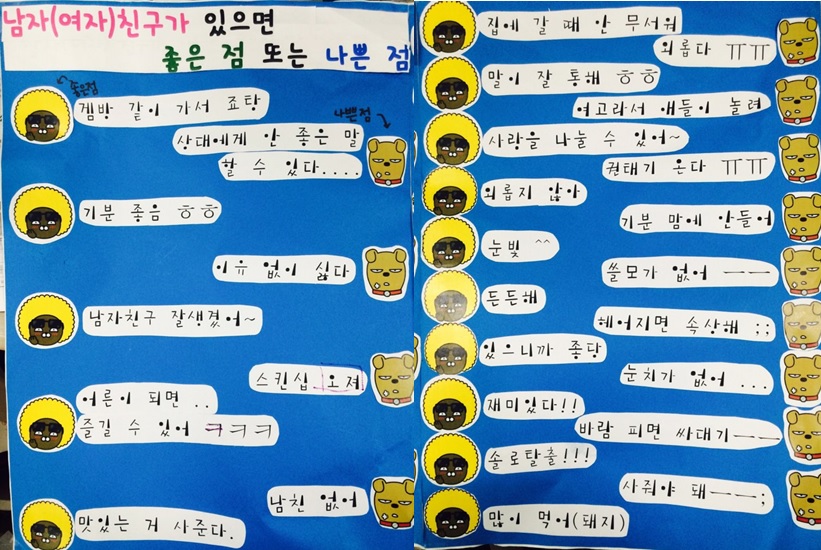 남자(여자)친구가 있으면
좋은 점 또는 나쁜 점
좋은점
겜방 같이 가서 죠탕
나쁜점
상대에게 안 좋은 말
할 수 있다....
기분 좋음 ㅎㅎ
이유 없이 싫다
남자친구 잘생겼어~
스킨십 오져
어른이 되면..
즐길 수 있어 ㅋㅋㅋ
남친 없어
맛있는 거 사준다.
집에 갈 때 안 무서워
외롭다 ㅠㅠ
말이 잘 통해 ㅎㅎ
여고라서 얘들이 놀려
사랑을 나눌 수 있어~
권태기 온다 ㅠㅠ
외롭지 않아
기분 맘에 안들어
눈빛 ^^
쓸모가 없어 ㅡㅡ
든든해
헤어지면 속상해 ;;
있으니까 좋당
눈치가 없어 ...
재미있다!!
바람 피면 싸대기ㅡㅡ
솔로탈출!!!
사줘야 돼ㅡㅡ;
많이 먹어(돼지)